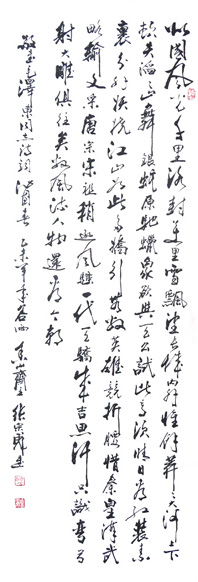 北国风光千里冰封万里雪飘望长城内外惟余莽莽大河上下
顿失滔滔山舞银蛇原驰蜡象欲与天公试比高须晴日看红装素
裹分外妖娆江山如此多娇引无数英雄竞折腰惜秦皇汉武
略输文采唐宗宋祖稍逊风骚一代天骄成吉思汗只识弯弓
射大雕俱往矣数风流人物还看今朝
敬录毛泽东同志诗词沁园春乙未年